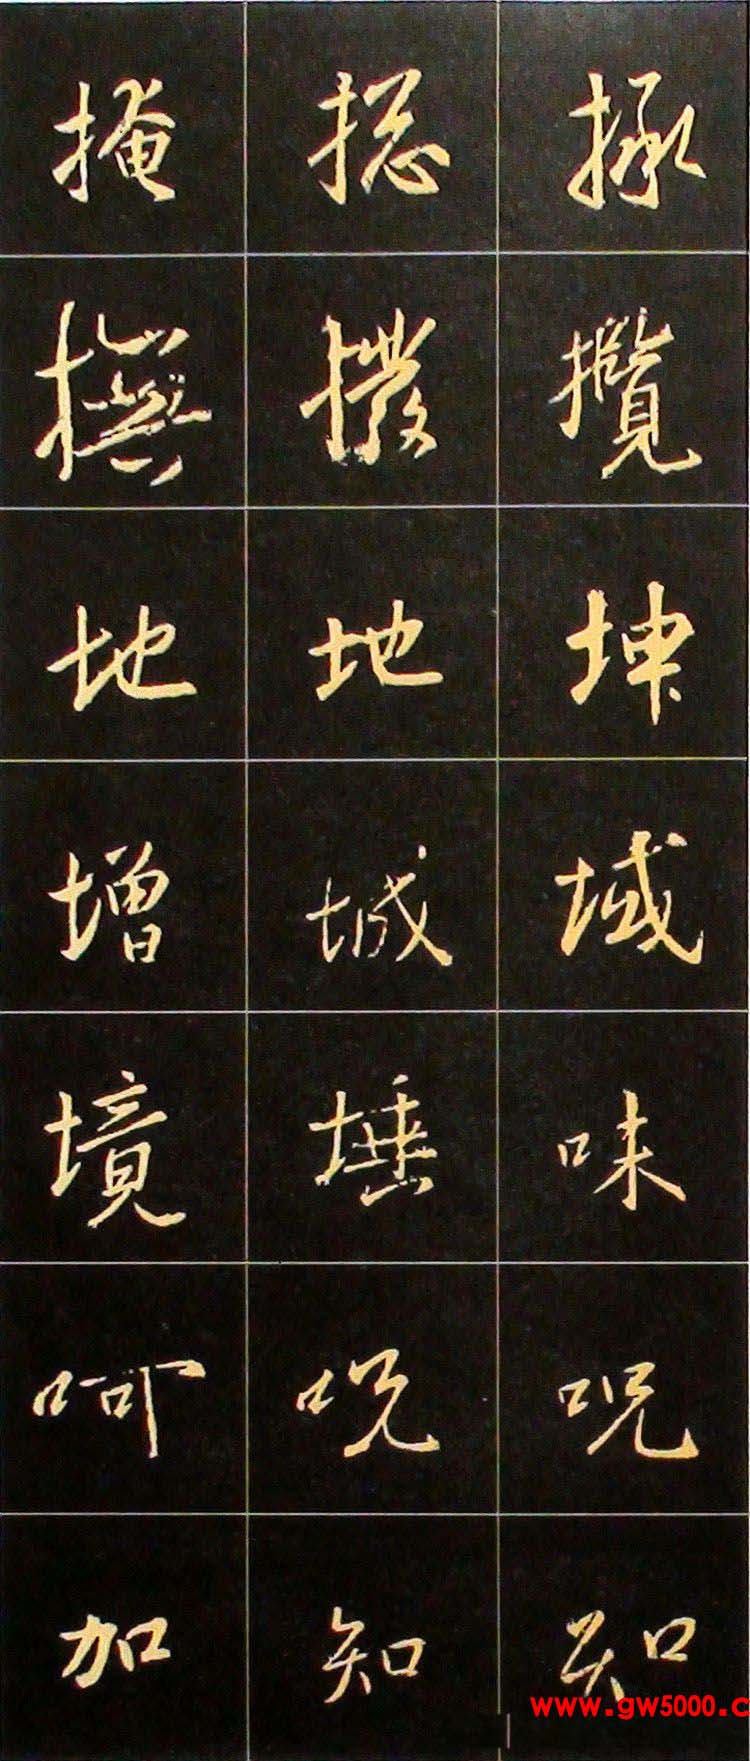 掩 揔 拯
撫 撥 攬
地 地 坤
增 城 域
境 埵 味
呵 呪 呪
加 知 知
www.gw5000.c